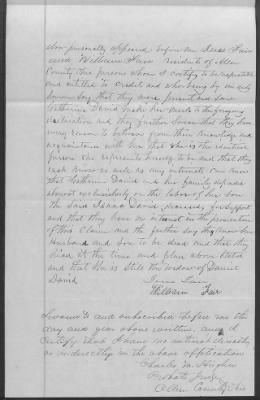 also personally appeared before me Isaac Fair
and William Fair residents of Allen
County Ohio persons whom I certify to be reputable
and entitled to credit and who being by me duly
Sworn say that they were present and saw
Catharine David make her mark to the foregoing
declaration and they further swear that they have
every reason to believe from their knowledge and
acquaintance with her that she is the identical
person she represents herself to be and that they
that Catharine David and her family depended
almost exclusively on the labor of her Son
the said Isaac David, deceased, for support
and that they have no interest in the prosecution
of this Claim and the further say they knew her
Husband and Son to be dead and that they
died at the time and place above stated
and that she is still the widow of
David
Isaac Fair
William Fair
Sworn to and subscribed before me the
day and year above written, and I
Certify that I have no interest directly
or indirectly in the above application
Charles M. Hughes
Probate Judge
Allen County Ohio